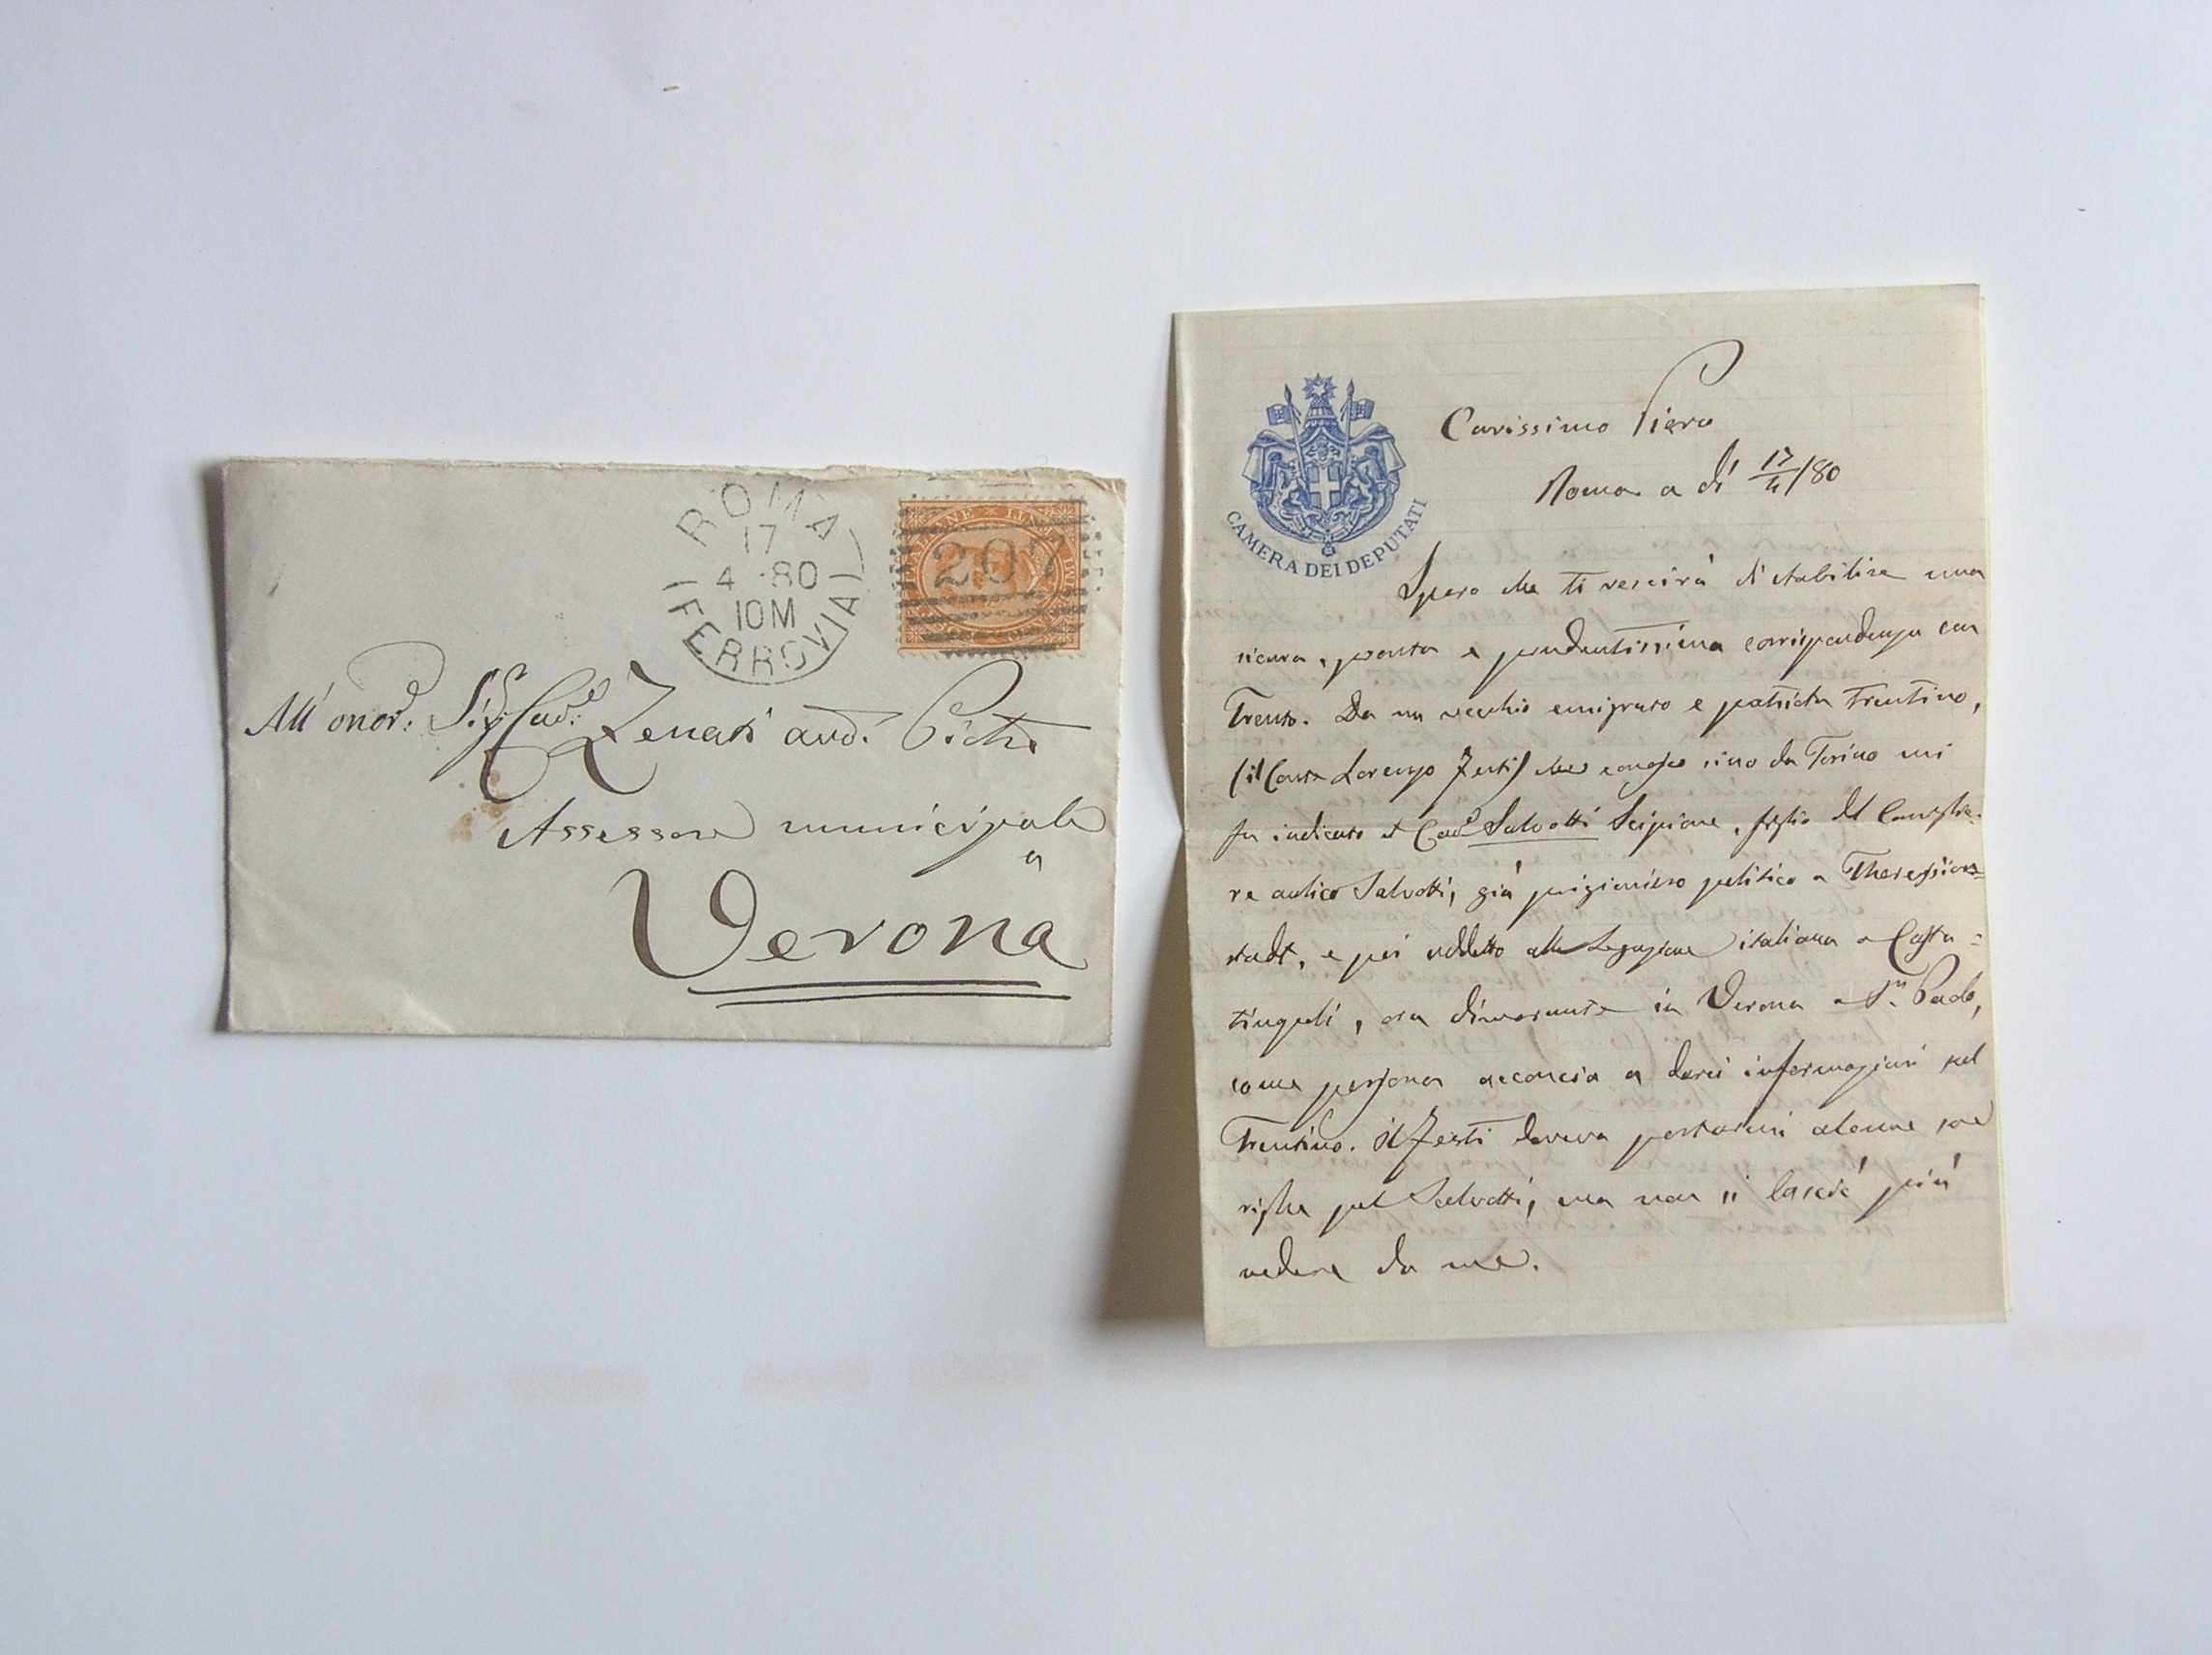 ROMA
17
4 80
10M
(FERROVIA)
207
All' onor.: Sig. Cav.e Zenati avv. Pietro
Assessore municipale
a
Verona
CAMERA DEI DEPUTATI
Carissimo Piero
Roma a dì 17/4/80
Spero che ti rescirà di stabilire una
sicura, pronta e prudentissima corrispondenza con
Trento. Da un vecchio emigrato e patriota Trentino,
(il Conte Lorenzo Festi) che conosco sino da Torino mi
fu indicato il Cav.e Salvotti Scipione, figlio del Consiglie-
re aulico Salvotti, già prigioniero politico a Theresien=
stadt, e poi addetto alla Legazione italiana a Costan=
tinopoli, ora dimorante in Verona a Sn. Paolo,
come persona acconcia a darci informazioni sul
Trentino. Il Festi doveva portarmi alcune
righe pel Salvotti, ma non si lasciò più
vedere da me.